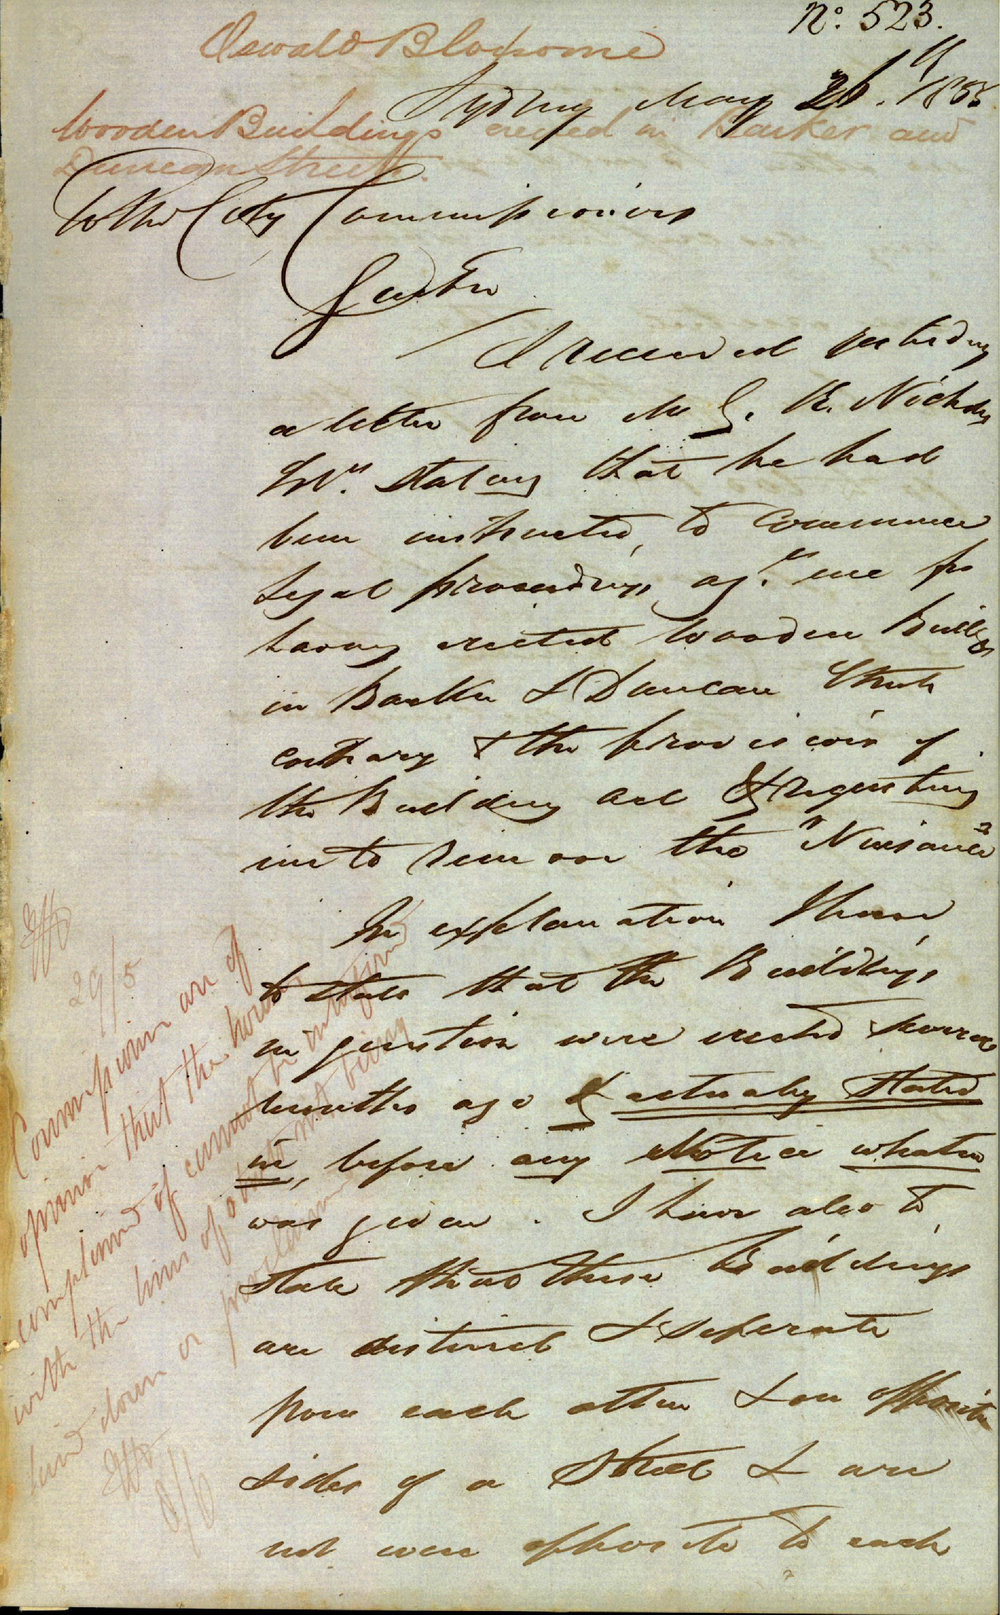 No. 523.
Oswald Bloxsome
Sydney May 26th. 1855
Wooden Buildings erected in Barker and
Duncan Streets.
To the City Commissioners
Gentn
I received yesterday
a letter from Mr G. R. Nichols
stating that he had
been instructed, to commence
legal proceedings agt. me for
having erected Wooden Buildgs
in Barker & Duncan Streets
contrary to the provisions of
the Building Act & requesting
me to remove the "Nuisance"
In explanation I have
to state that the Buildings
in question were erected some
months ago & actually
in, before any Notice whatever
was given. I have also to
state that these Buildings
are distinct & seperate
from each other & on opposite
sides of a Street & are
not even opposite to each
29/5
Commissioners are of
opinion that the houses
complained of cannot be
with the lines of
laid down or proclaimed
8/6